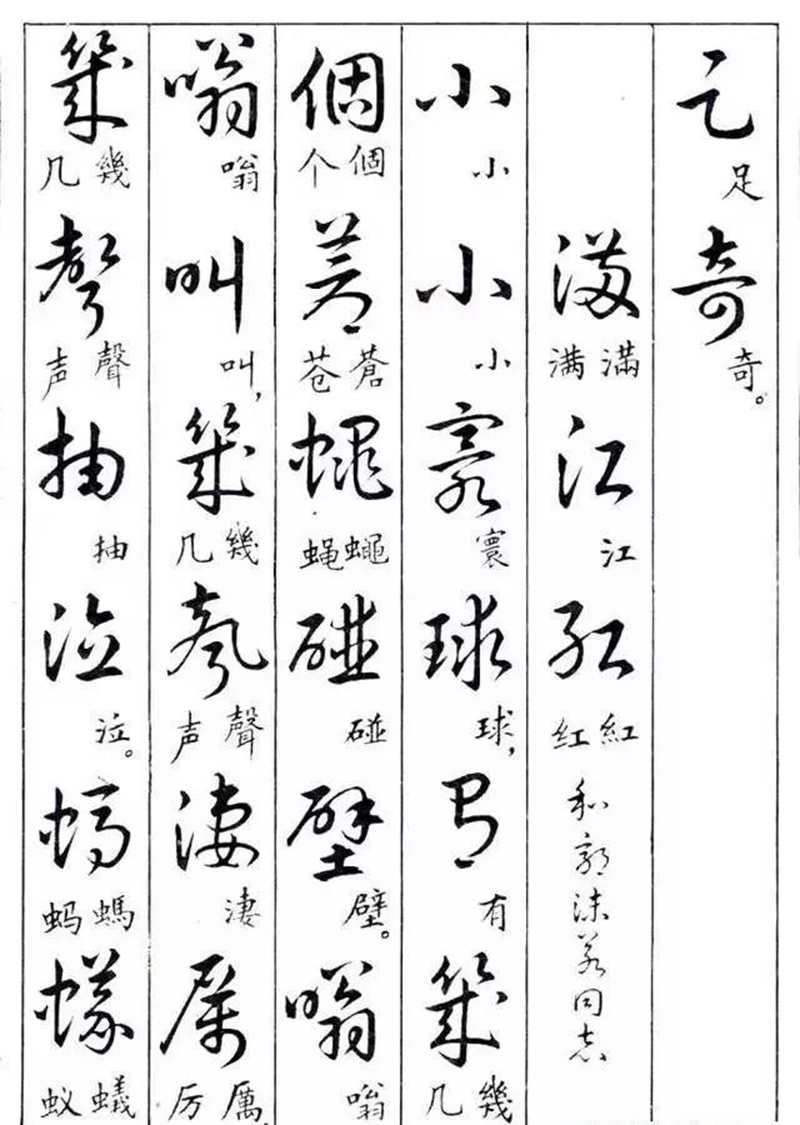 足足奇奇。
滿滿满江江紅紅红
和郭沫若同志
小小小小寰寰球球，有有幾幾几
個個个蒼蒼苍蠅蠅蝇碰碰壁壁。嗡嗡
嗡嗡叫叫，幾幾几聲聲声淒淒厲厲厉，
幾幾几聲聲声抽抽泣泣。螞螞蚂蟻蟻蚁